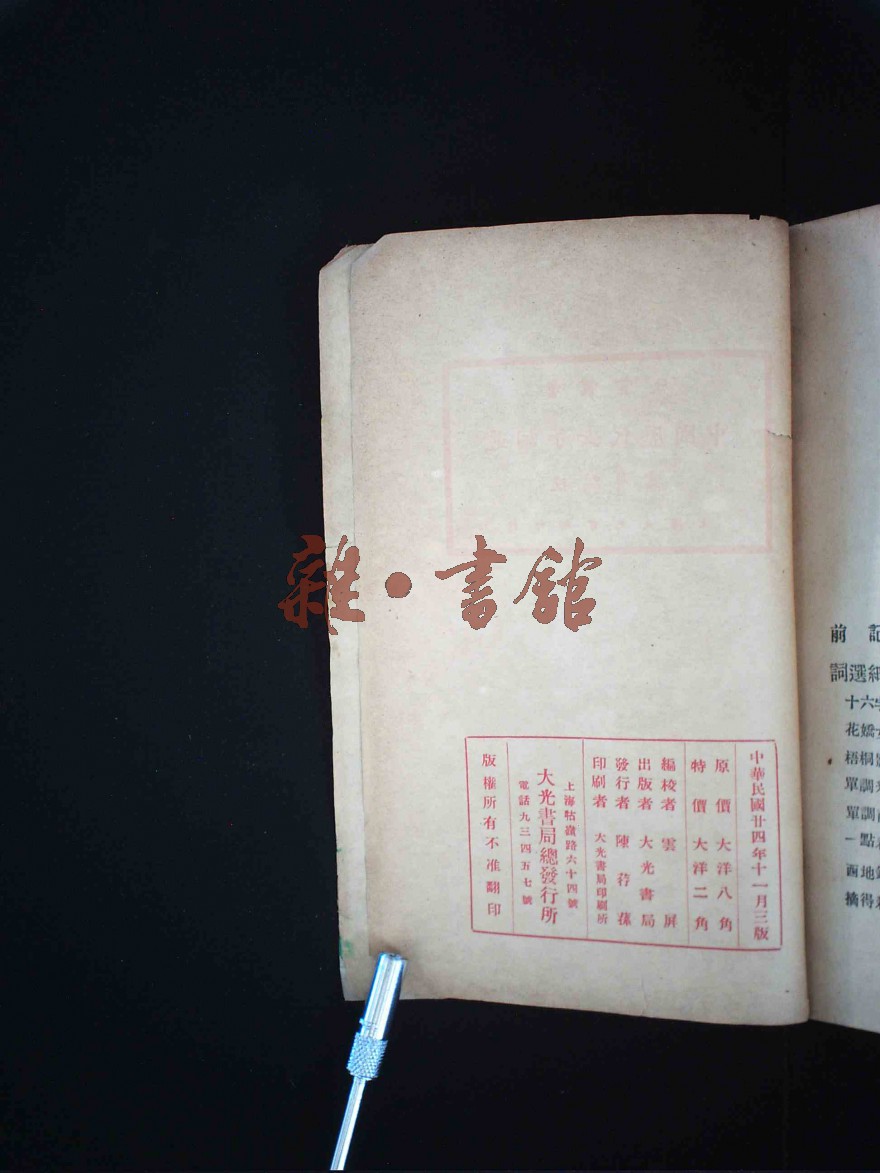 雜·書館
中華民國廿四年十一月三版
原價大洋八角
特價大洋二角
編校者 雲屏
出版者 大光書局
發行者 陳荇蓀
印刷者 大光書局印刷所
上海牯嶺路六十四號
大光書局總發行所
電話九三四五七號
版權所有不准翻印
前記
詞選
十六
花嬌
梧桐
單調
單調
一點
西地
摘得